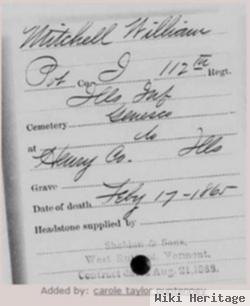 Mitchell William
Pvt Co. I 112th Regt.
Ills Inf
Cemetery Geneseo
at Co
Henry Co. Ills
Grave
Date of death Feby 17-1865
Headstone supplied by
Sheldon & Sons,
West Rutland, Vermont.
Contract dated Aug. 21, 1888.
Added by: carole taylor
Wiki Heritage